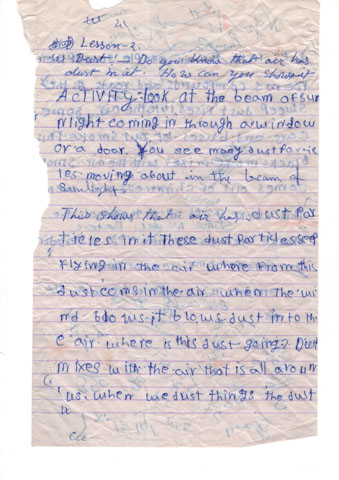 2.
Lesson-2.
Dust. Do you know that air has
dust in it. How can you show it
ACTIVITY-look at the beam of sun
night coming in through a window
or a door. You see many dust partic
les moving about in the beam of
Sunlight.
This shows that air has dust Par
ticles in it These dust Particles keep
Flying in the air where From this
dust coms in the air when the wi
nd blows it blows dust in to th
e air where is this dust going? Dust
mixes with the air that is all aroun
us. when we dust things the dust